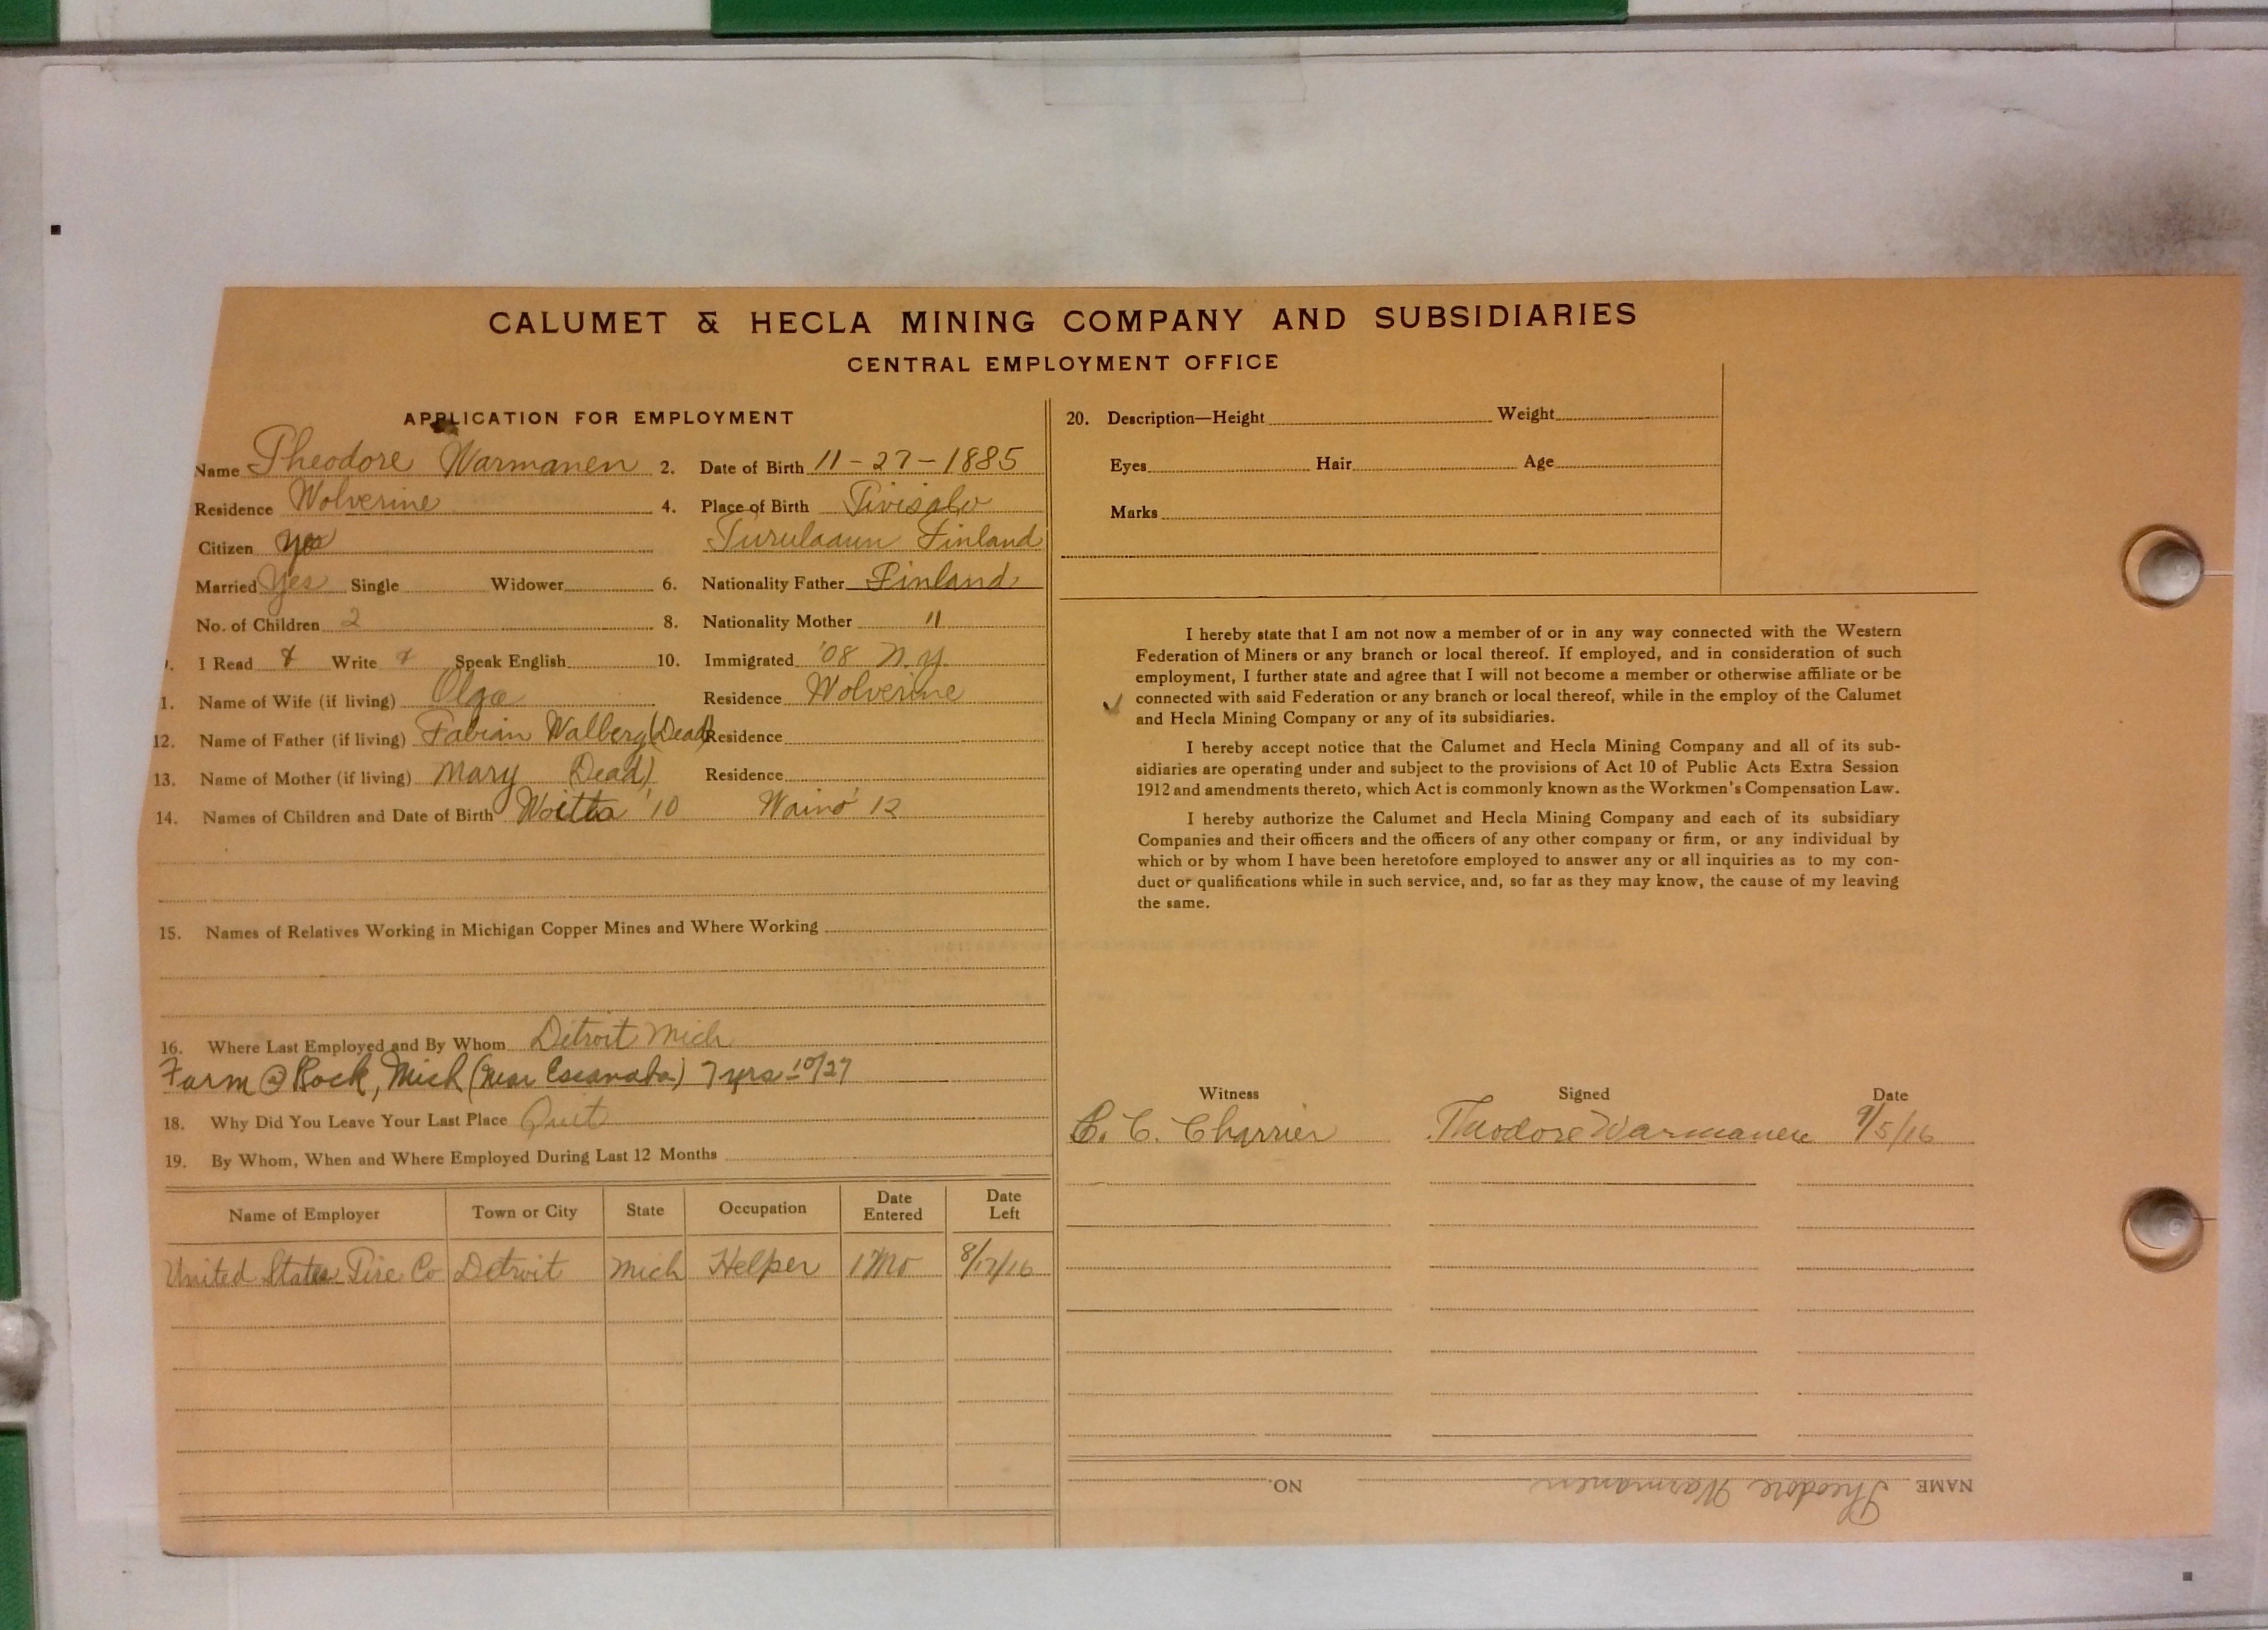 CALUMET & HECLA MINING COMPANY AND SUBSIDIARIES
CENTRAL EMPLOYMENT OFFICE
APPLICATION FOR EMPLOYMENT
Name Theodore Warmanen 2. Date of Birth 11-27-1885
Residence Wolverine 4. Place of Birth
Citizen yes Finland
Married Yes Single Widower 6. Nationality Father Finland
No. of Children 2 8. Nationality Mother "
I Read Write Speak English 10. Immigrated '08 N.Y.
1. Name of Wife (if living) Olga Residence Wolverine
12. Name of Father (if living) Fabian Walberg (Dead) Residence
13. Name of Mother (if living) Mary (Dead) Residence
14. Names of Children and Date of Birth '10 Waino '12
15. Names of Relatives Working in Michigan Copper Mines and Where Working
16. Where Last Employed and By Whom Detroit Mich
Farm @ Rock, Mich (near Escanaba) 7 yrs - 10/27
18. Why Did You Leave Your Last Place Quit
19. By Whom, When and Where Employed During Last 12 Months
Name of Employer Town or City State Occupation Date Entered Date Left
United States Tire Co Detroit Mich Helper 1 Mo 8/17/16
20. Description—Height Weight
Eyes Hair Age
Marks
I hereby state that I am not now a member of or in any way connected with the Western
Federation of Miners or any branch or local thereof. If employed, and in consideration of such
employment, I further state and agree that I will not become a member or otherwise affiliate or be
connected with said Federation or any branch or local thereof, while in the employ of the Calumet
and Hecla Mining Company or any of its subsidiaries.
I hereby accept notice that the Calumet and Hecla Mining Company and all of its sub-
sidiaries are operating under and subject to the provisions of Act 10 of Public Acts Extra Session
1912 and amendments thereto, which Act is commonly known as the Workmen's Compensation Law.
I hereby authorize the Calumet and Hecla Mining Company and each of its subsidiary
Companies and their officers and the officers of any other company or firm, or any individual by
which or by whom I have been heretofore employed to answer any or all inquiries as to my con-
duct or qualifications while in such service, and, so far as they may know, the cause of my leaving
the same.
Witness Signed Date
C. C. Charrier Theodore Warmanen 9/5/16
NAME Theodore Warmanen NO.